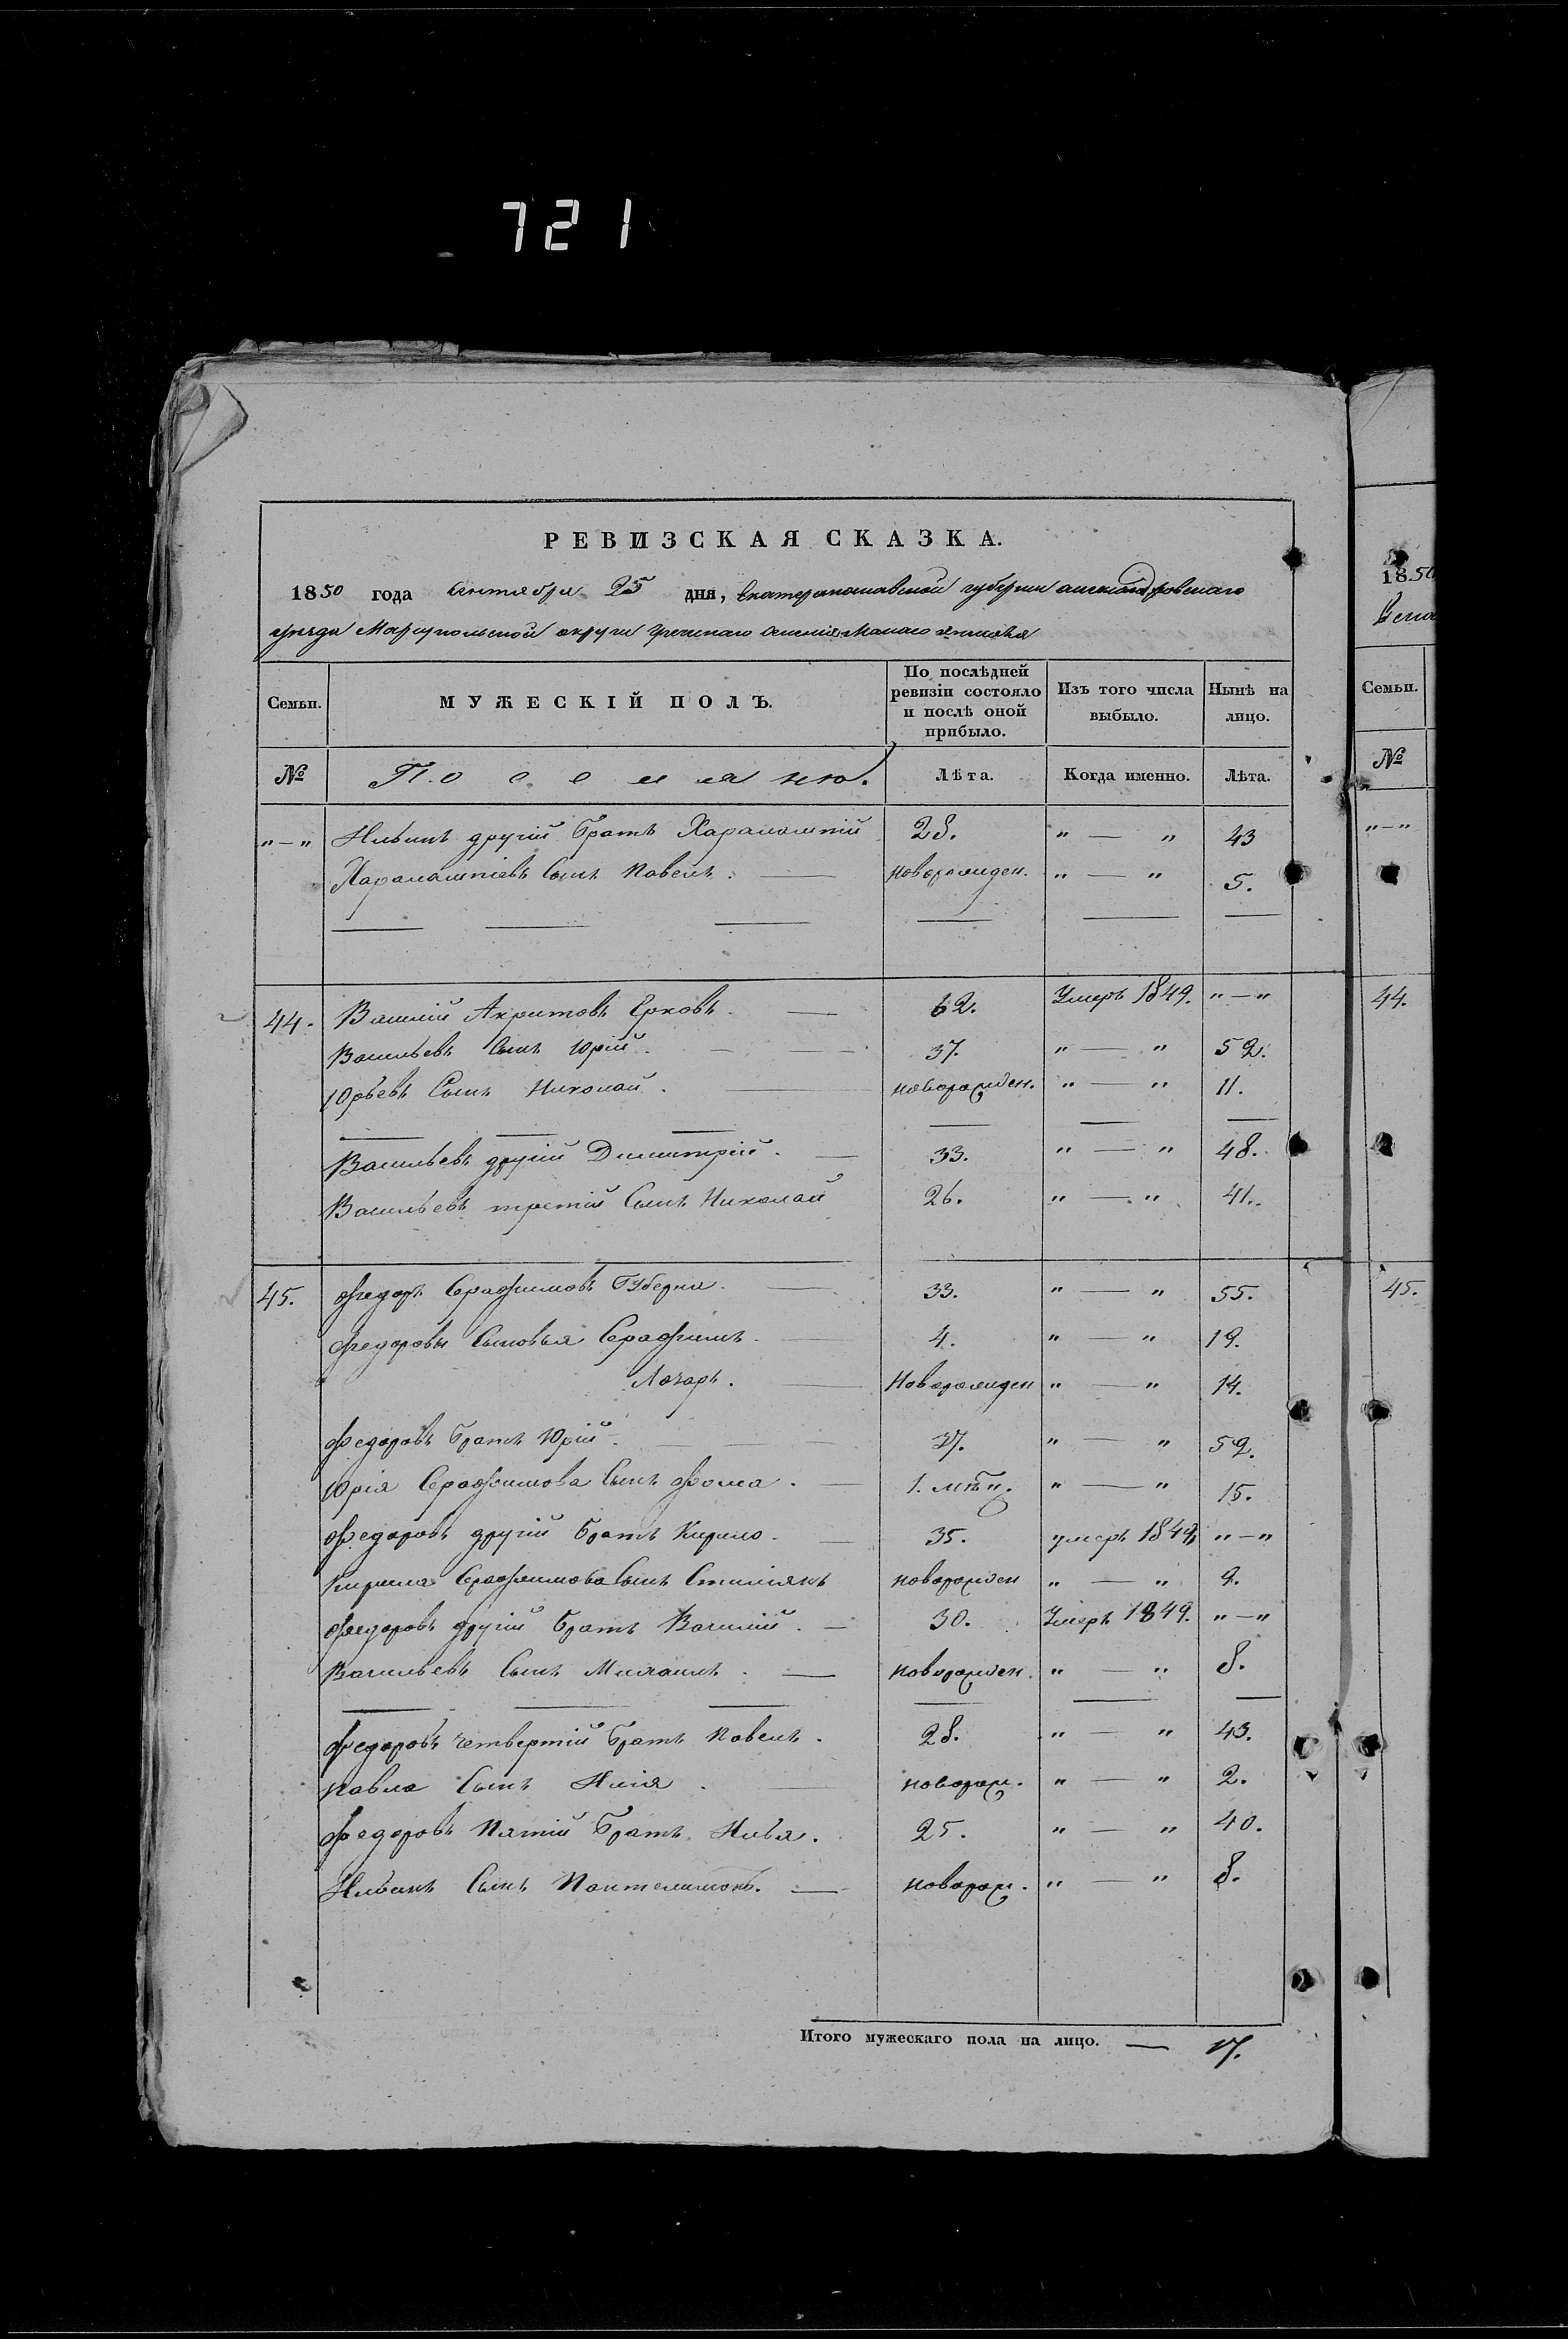 721
РЕВИЗСКАЯ СКАЗКА.
1850 года Сентября 25 дня, Екатеринославской губерніи Александровскаго
уѣзда Маріупольской округи Греческаго селенія Малаго Янисоля
Семьи. МУЖЕСКІЙ ПОЛЪ. По послѣдней ревизіи состояло и послѣ оной прибыло. Изъ того числа выбыло. Нынѣ на лицо.
№ Поселяне. Лѣта. Когда именно. Лѣта.
"—" Ильинъ другій братъ Харалампій 28. "—" 43
Харалампіевъ Сынъ Павелъ. новорожден. "—" 5.
44. Василій Акритовъ Ерковъ. 62. Умеръ 1849. "—"
Васильевъ Сынъ Юрій. 37. "—" 52.
Юрьевъ Сынъ Николай. новорожден. "—" 11.
Васильевъ другій Димитрій. 33. "—" 48.
Васильевъ третій Сынъ Николай 26. "—" 41.
45. Федоръ Серафимовъ 33. "—" 55.
Федоровы Сыновья Серафимъ. 4. "—" 19.
Лазарь. Новорожден "—" 14.
Федоровъ братъ Юрій. 37. "—" 52.
Юрія Серафимова Сынъ Фома. 1. мѣс. "—" 15.
Федоровъ другій братъ Кирило. 35. умеръ 1849, "—"
Кирила Серафимова Сынъ новорожден "—" 9.
Федоровъ другій братъ Василій. 30. Умеръ 1849. "—"
Васильевъ Сынъ Михаилъ. новорожден. "—" 8.
Федоровъ четвертій братъ Павелъ. 28. "—" 43.
Павла Сынъ Илія. новорож. "—" 2.
Федоровъ Пятій братъ Илья. 25. "—" 40.
Ильинъ Сынъ Пантелимонъ. новорож. "—" 8.
Итого мужескаго пола на лицо. — 17.
1850
Семьи.
№
"—"
44.
45.